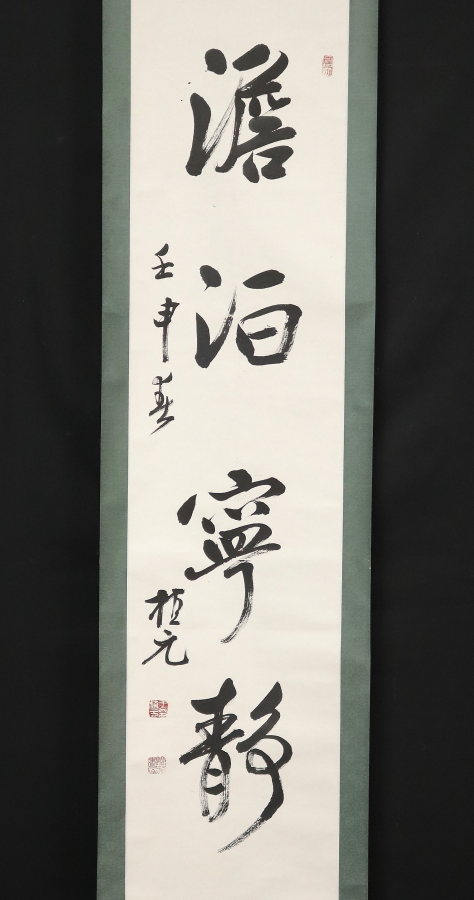 澹泊寧靜
壬申春
植元